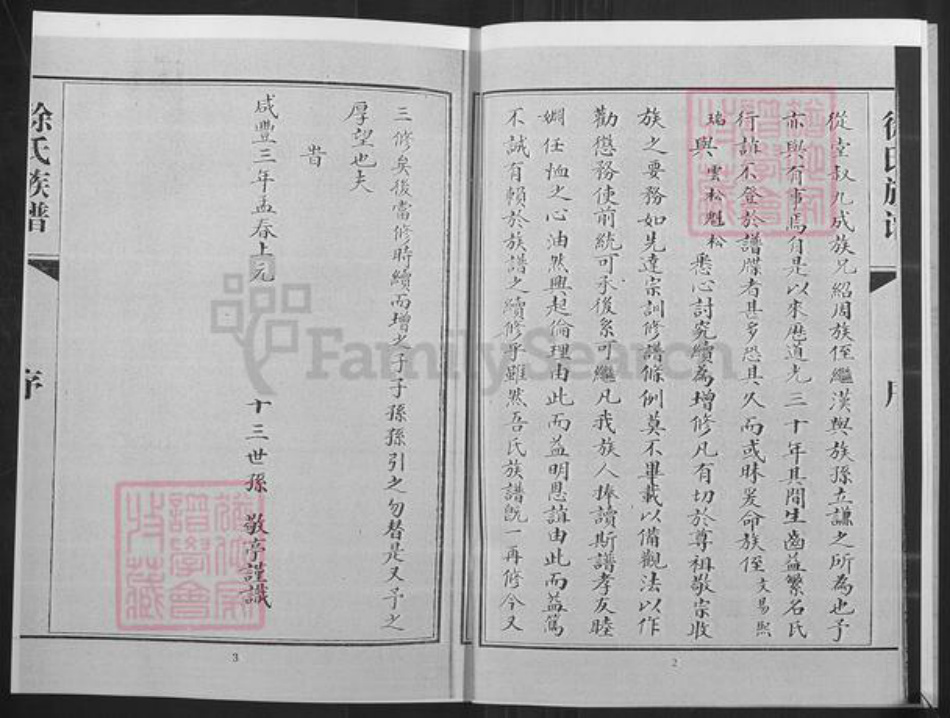 徐氏族譜
序
從堂叔九成族兄紹周族侄繼漢與族孫立謙之所為也予
亦與有事焉自是以來歷道光三十年其間生齒益繁名氏
行誼不登於譜牒者甚多恐其久而或昧爰命族侄文易熙
瑞與雲松魁松悉心討究續為增修凡有切於尊祖敬宗收
族之要務如先達宗訓修譜條例莫不畢載以備觀法以作
勸懲務使前統可承後系可繼凡我族人捧讀斯譜孝友睦
婣任恤之心油然興起倫理由此而益明恩誼由此而益篤
不誠有賴於族譜之續修乎雖然吾氏族譜既一再修今又
2
三修矣後當修時續而增之子子孫孫引之勿替是又予之
厚望也夫
旹
咸豐三年孟春上元 十三世孫 敬亭謹識
徐氏族譜
序
3
FamilySearch